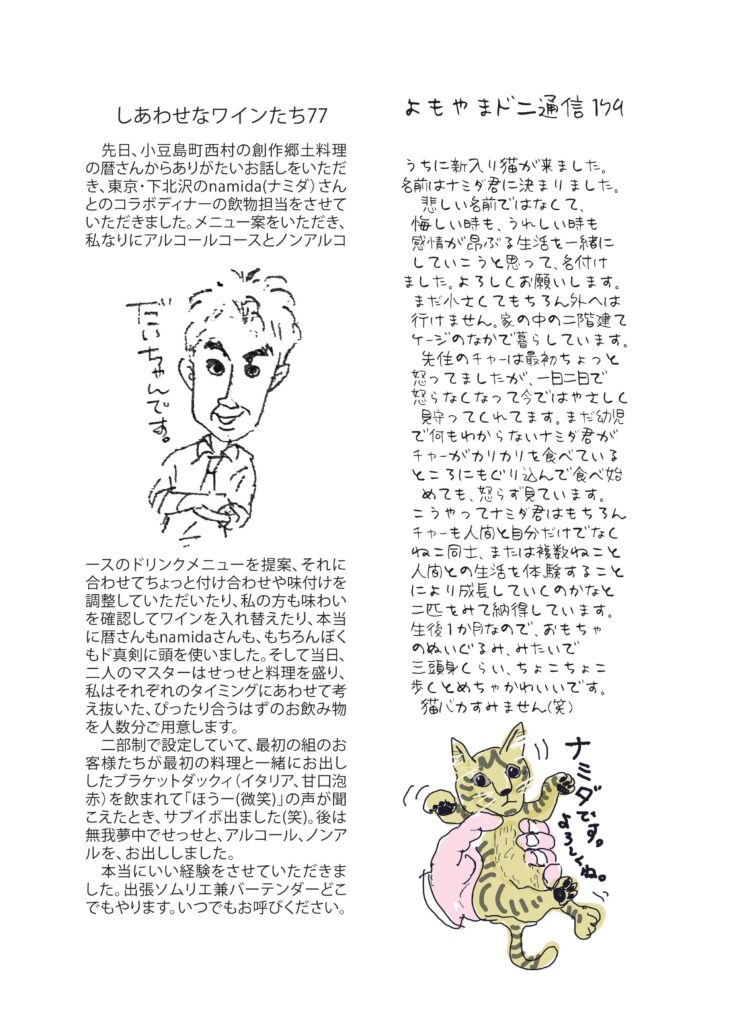 しあわせなワインたち77
　先日、小豆島町西村の創作郷土料理
の暦さんからありがたいお話しをいただ
き、東京・下北沢のnamida(ナミダ）さん
とのコラボディナーの飲物担当をさせて
いただきました。メニュー案をいただき、
私なりにアルコールコースとノンアルコ
だいちゃんです。
ースのドリンクメニューを提案、それに
合わせてちょっと付け合わせや味付けを
調整していただいたり、私の方も味わい
を確認してワインを入れ替えたり、本当
に暦さんもnamidaさんも、もちろんぼく
もド真剣に頭を使いました。そして当日、
二人のマスターはせっせと料理を盛り、
私はそれぞれのタイミングにあわせて考
え抜いた、ぴったり合うはずのお飲み物
を人数分ご用意します。
　二部制で設定していて、最初の組のお
客様たちが最初の料理と一緒にお出し
したブラケットダックィ（イタリア、甘口泡
赤）を飲まれて「ほうー(微笑)」の声が聞
こえたとき、サブイボ出ました(笑)。後は
無我夢中でせっせと、アルコール、ノンア
ルを、お出ししました。
　本当にいい経験をさせていただきま
した。出張ソムリエ兼バーテンダーどこ
でもやります。いつでもお呼びください。
よもやまドニ通信159
うちに新入り猫が来ました。
名前はナミダ君に決まりました。
悲しい名前ではなくて、
悔しい時も、うれしい時も
感情が昂ぶる生活を一緒に
していこうと思って、名付け
ました。よろしくお願いします。
まだ小さくてもちろん外へは
行けません。家の中の二階建て
ケージのなかで暮らしています。
先住のチャーは最初ちょっと
怒ってましたが、一日二日で
怒らなくなって今ではやさしく
見守ってくれてます。まだ幼児
で何もわからないナミダ君が
チャーがカリカリを食べている
ところにもぐり込んで食べ始
めても、怒らず見ています。
こうやってナミダ君はもちろん
チャーも人間と自分だけでなく
ねこ同士、または複数ねこと
人間との生活を体験すること
により成長していくのかなと
二匹をみて納得しています。
生後1か月なので、おもちゃ
のぬいぐるみ、みたいで
三頭身くらい、ちょこちょこ
歩くとめちゃかわいいです。
猫バカすみません(笑)
ナミダです。
よろしくね。